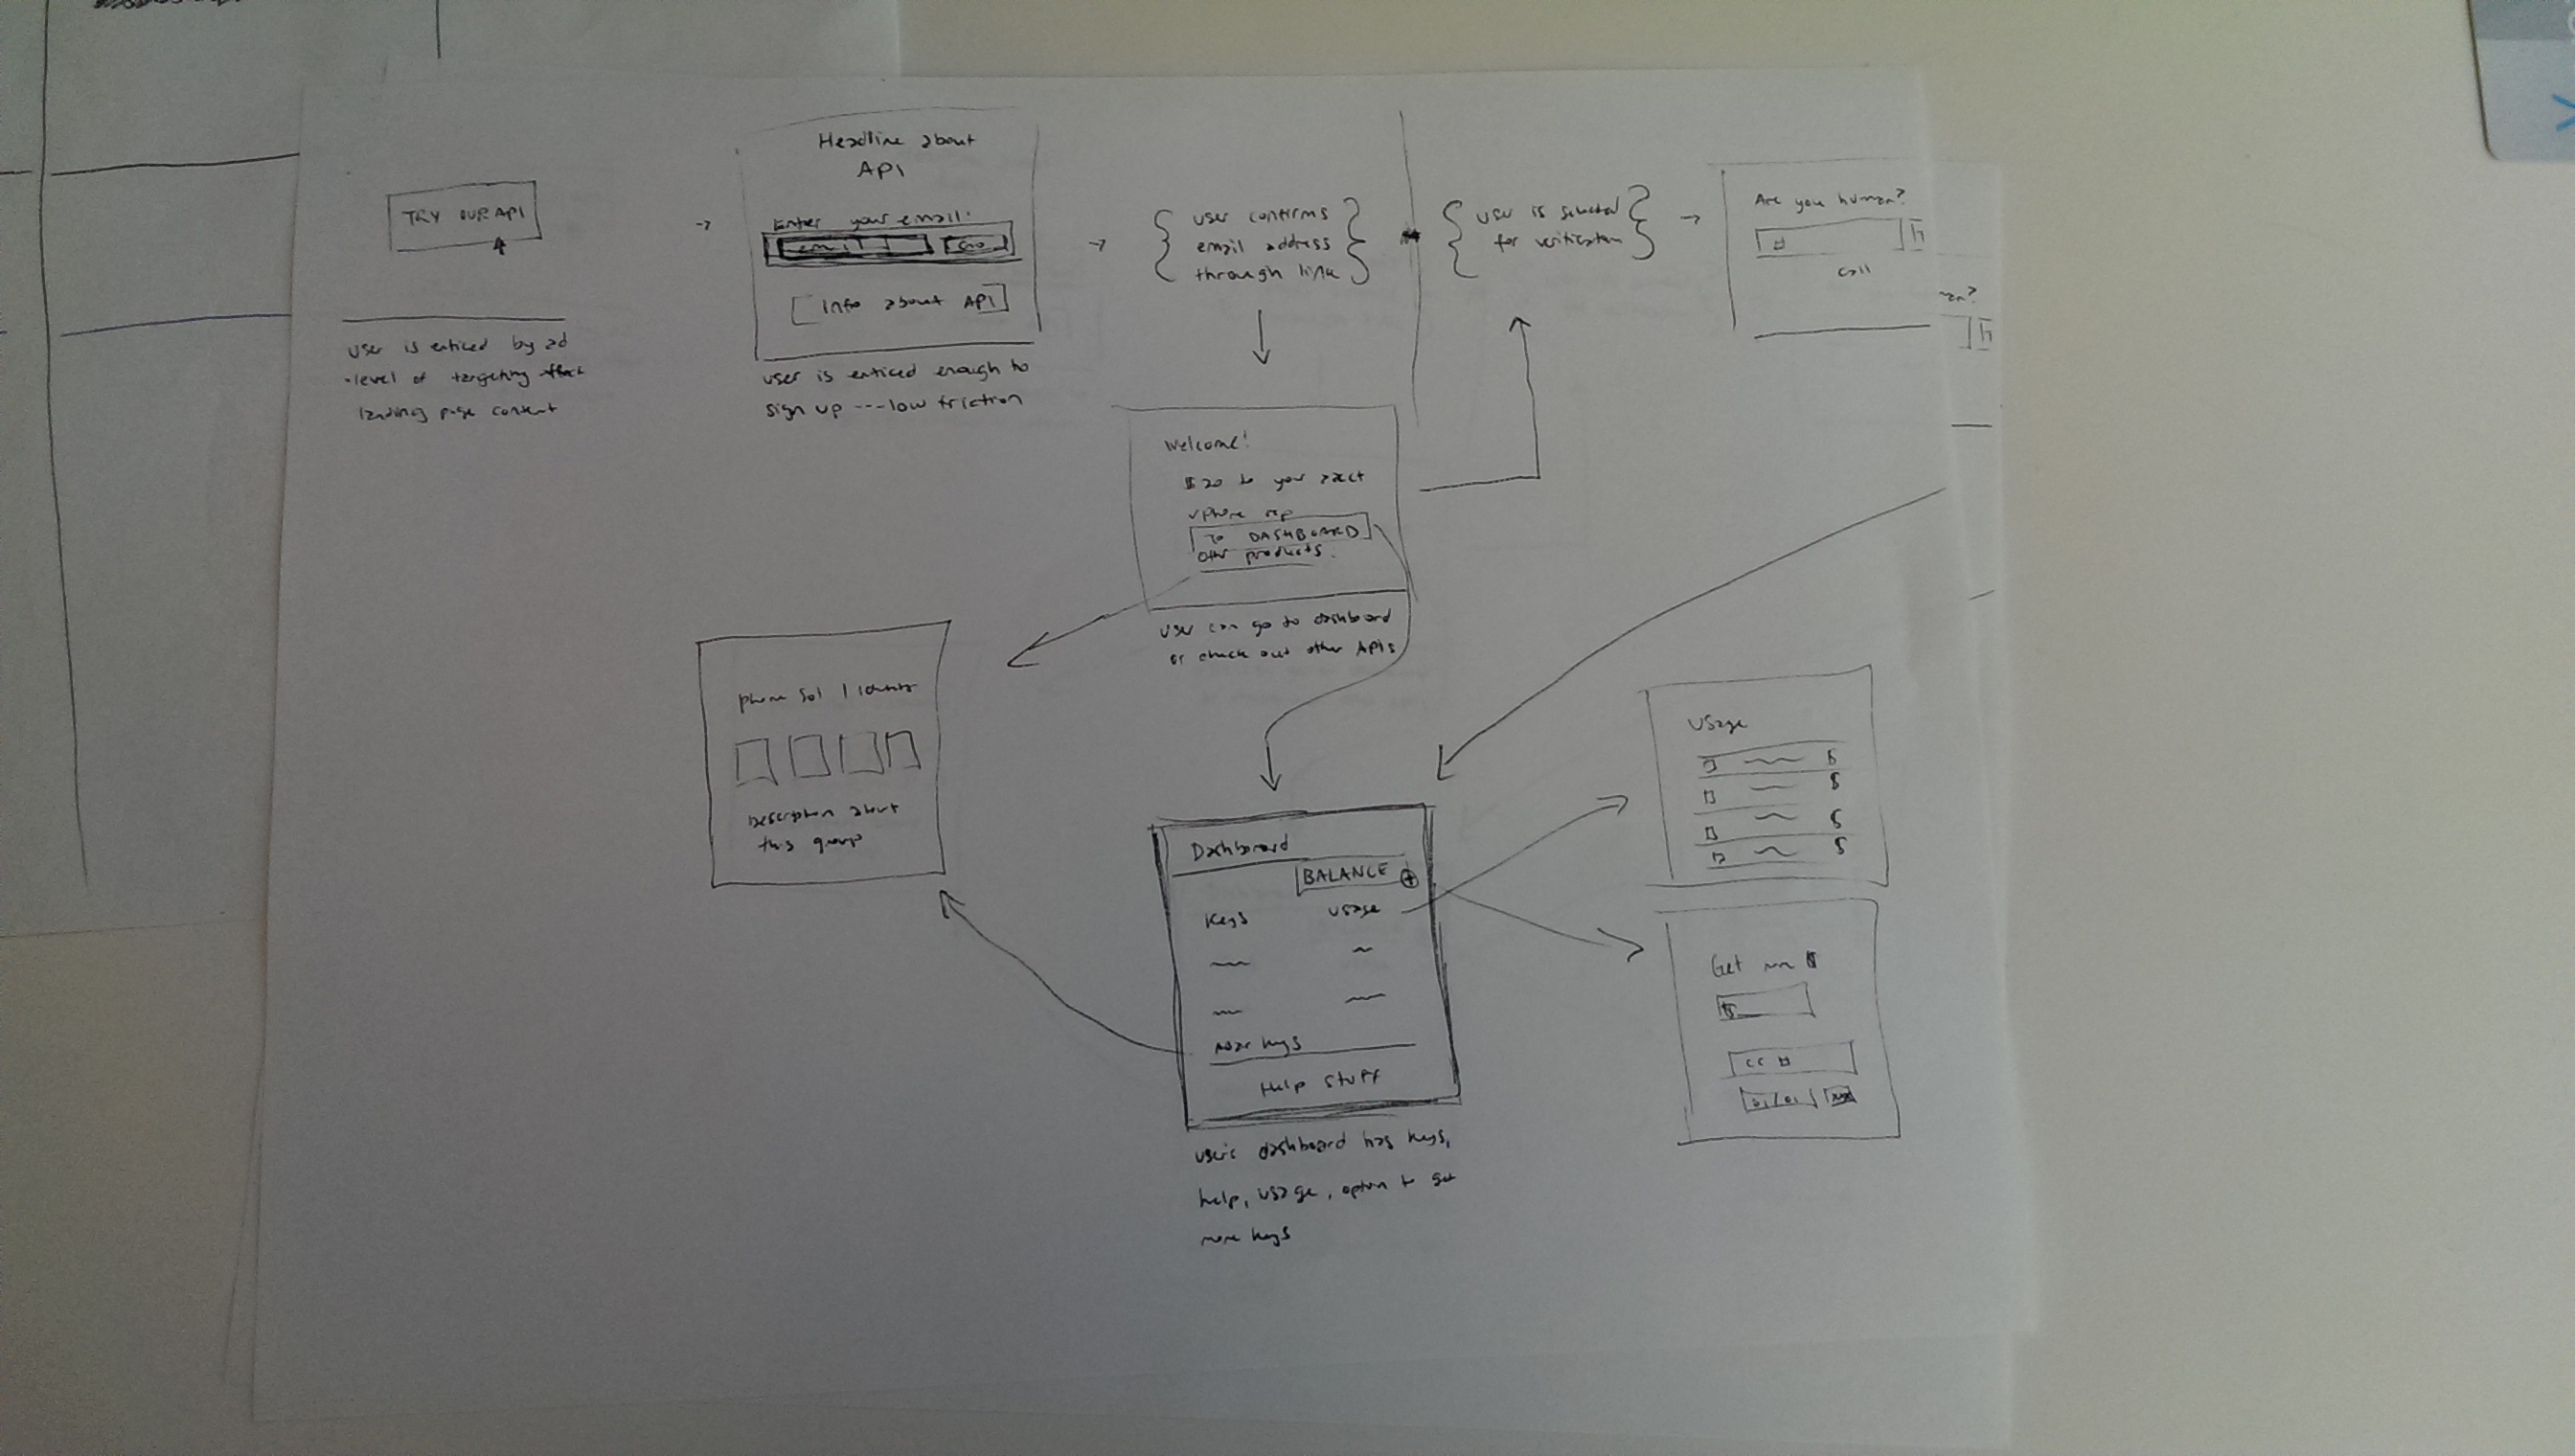 TRY OUR API
user is enticed by ad
-level of targeting
landing page content
Headline about
API
Enter your email:
email
Go
Info about API
user is enticed enough to
sign up ---low friction
user confirms
email address
through link
user is selected
for verification
Are you human?
#
call
Welcome!
$20 to your acct
phone rep
To DASHBOARD
other products.
user can go to dashboard
or check out other APIs
phone sol |
Description about
this group
Dashboard
BALANCE +
Keys usage
more keys
Help stuff
user's dashboard has keys,
help, usage, option to get
more keys
Usage
$
$
$
$
Get $
$
CC #
01/01